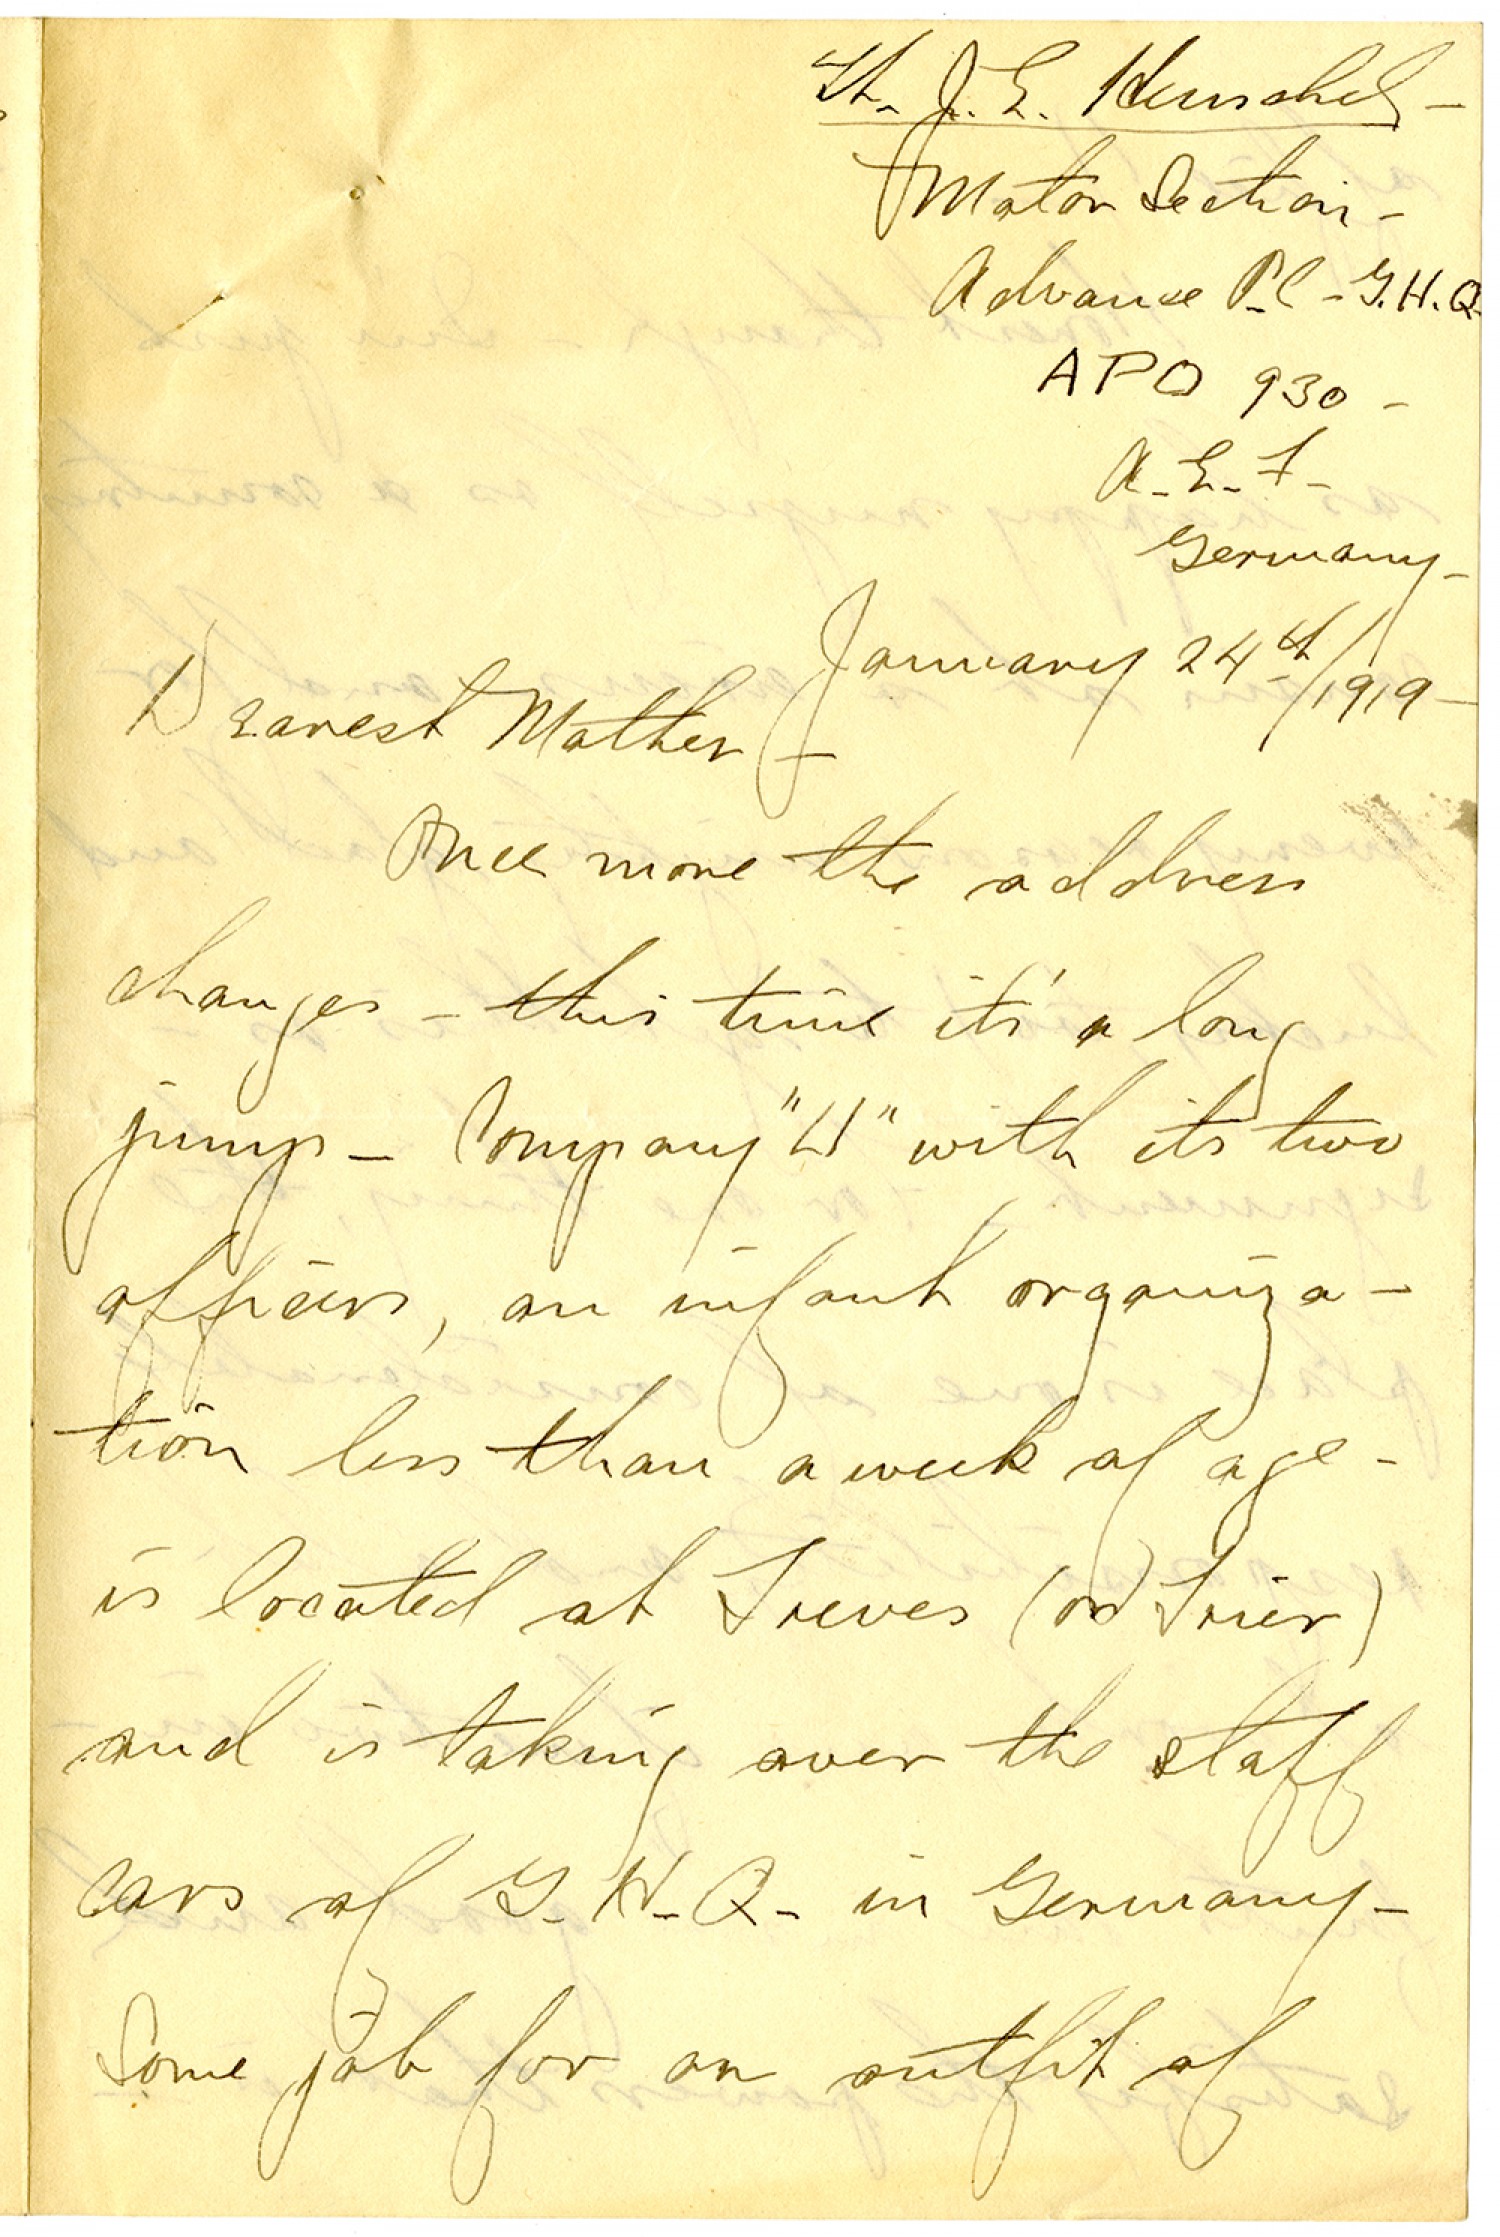 Lt. J. E. Henschel -
Motor Section -
Advance P.C - G.H.Q.
APO 930 -
A. E. F -
Germany -
January 24th/1919 -
Dearest Mother -
Once more the address
changes - this time it's a long
jump - Company "W" with its two
officers, an infant organiza-
tion less than a week of age -
is located at Treves (or Trier)
and is taking over the staff
cars of G. H. Q. in Germany -
Some job for an outfit of